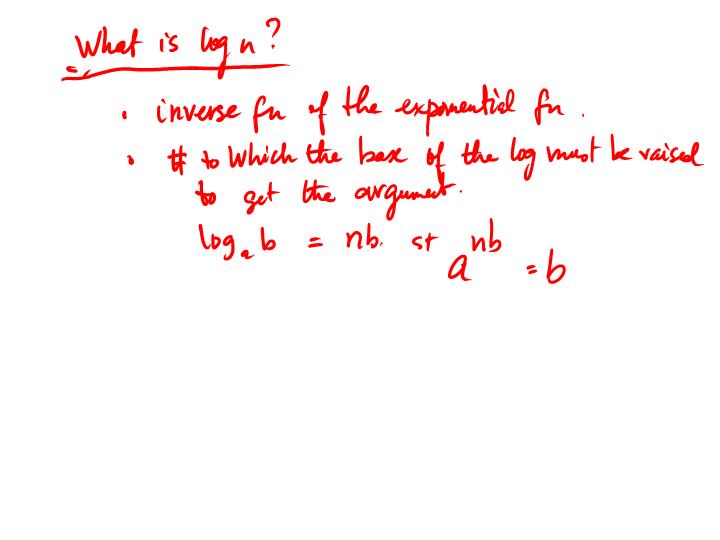 What is log n?
• inverse fn of the exponential fn.
• # to which the base of the log must be raised
to get the argument.
logₐ b = nb. st a^nb = b